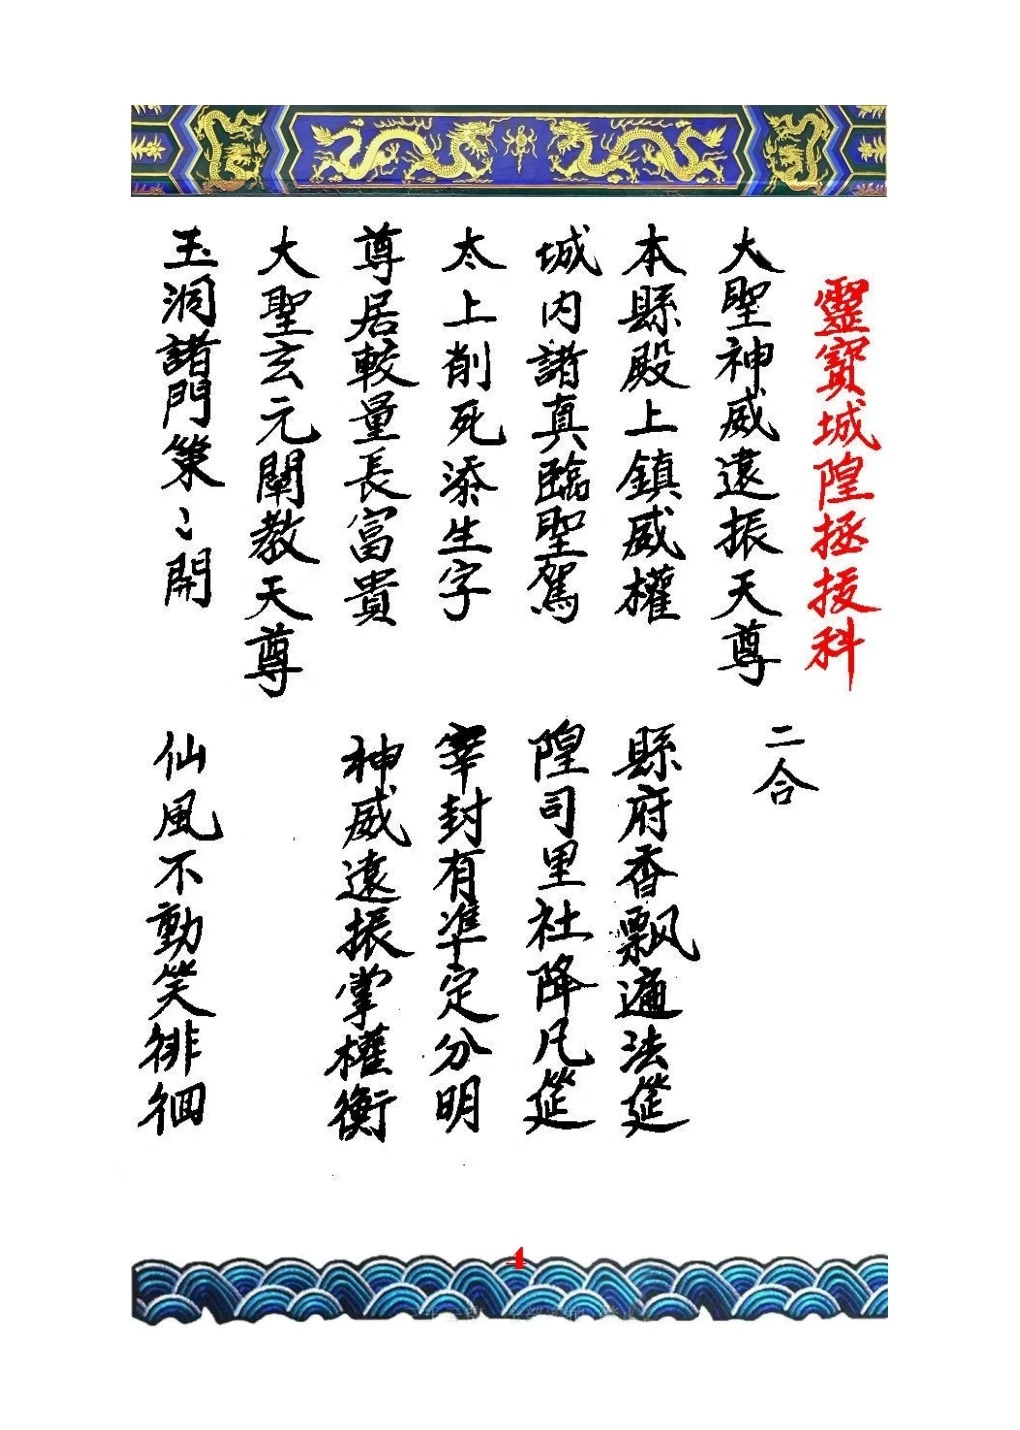 靈寶城隍拯拔科
大聖神威遠振天尊 二合
本縣殿上鎮威權 縣府香飄適法筵
城內諸真臨聖駕 隍司里社降凡筵
太上削死添生字 宰封有準定分明
尊居較量長富貴 神威遠振掌權衡
大聖玄元闡教天尊
玉洞諸門策〻開 仙風不動笑徘徊
4